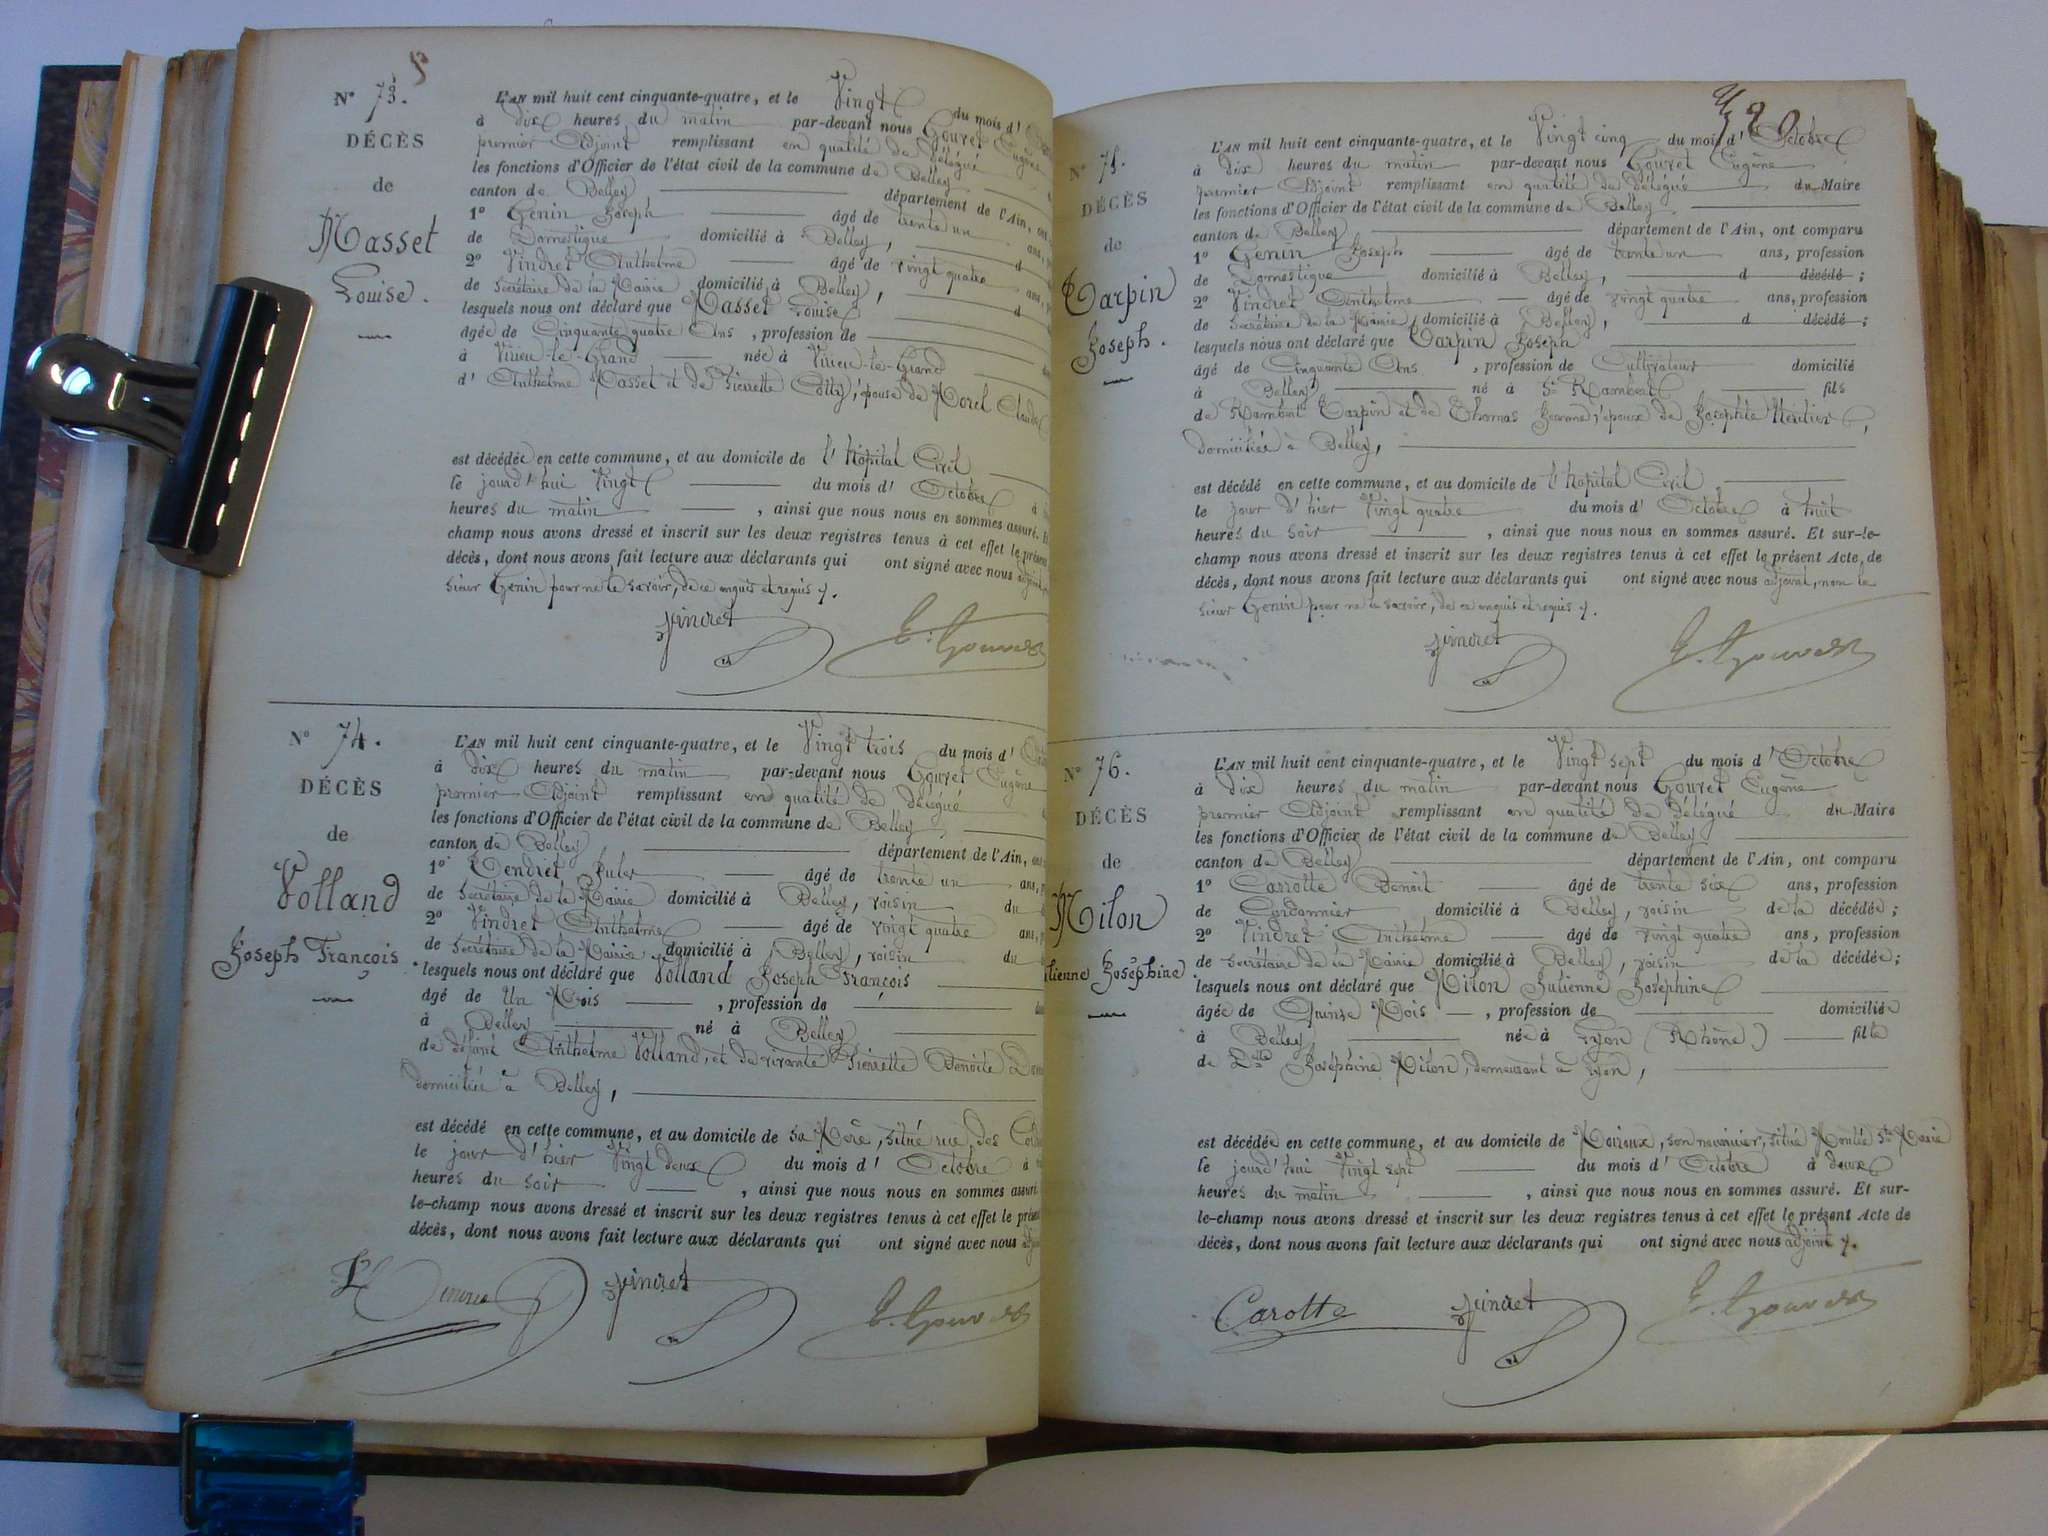 N° 73.
DÉCÈS
de
Masset
Louise.
L'AN mil huit cent cinquante-quatre, et le Vingt du mois d'
à dix heures du matin par-devant nous Gouvet Eugène
premier Adjoint remplissant en qualité de Délégué
les fonctions d'Officier de l'état civil de la commune de Belley
canton de Belley département de l'Ain, ont
1° Genin Joseph âgé de trente un ans,
de Domestique domicilié à Belley, d
2° Vindret Anthelme âgé de vingt quatre ans,
de Secrétaire de la Mairie domicilié à Belley, d
lesquels nous ont déclaré que Masset Louise
âgée de Cinquante quatre Ans, profession de
à Virieu-le-Grand née à Virieu-le-Grand
d'Anthelme Masset et de Pierrette Cotty, épouse de Morel Claude
est décédée en cette commune, et au domicile de l'hôpital Civil
le jourd'hui Vingt du mois d'Octobre à
heures du matin, ainsi que nous nous en sommes assuré.
champ nous avons dressé et inscrit sur les deux registres tenus à cet effet le présent
décès, dont nous avons fait lecture aux déclarants qui ont signé avec nous adjoint,
sieur Genin pour ne le savoir, de ce enquis et requis
Vindret E. Gouvet
N° 74.
DÉCÈS
de
Volland
Joseph François
L'AN mil huit cent cinquante-quatre, et le Vingt trois du mois d'
à dix heures du matin par-devant nous Gouvet Eugène
premier Adjoint remplissant en qualité de Délégué
les fonctions d'Officier de l'état civil de la commune de Belley
canton de Belley département de l'Ain,
1° Tendret Jules âgé de trente un ans,
de Secrétaire de la Mairie domicilié à Belley, voisin du
2° Vindret Anthelme âgé de vingt quatre ans,
de Secrétaire de la Mairie domicilié à Belley, voisin du
lesquels nous ont déclaré que Volland Joseph François
âgé de Un Mois, profession de
à Belley né à Belley
de défunt Anthelme Volland, et de vivante Pierrette Benoite
domiciliée à Belley,
est décédé en cette commune, et au domicile de sa Mère, situé rue des
le jour d'hier Vingt deux du mois d'Octobre à
heures du soir, ainsi que nous nous en sommes assuré.
le-champ nous avons dressé et inscrit sur les deux registres tenus à cet effet le présent
décès, dont nous avons fait lecture aux déclarants qui ont signé avec nous
Vindret E. Gouvet
N° 75.
DÉCÈS
de
Tarpin
Joseph.
L'AN mil huit cent cinquante-quatre, et le Vingt cinq du mois d'Octobre
à dix heures du matin par-devant nous Gouvet Eugène
premier Adjoint remplissant en qualité de délégué du Maire
les fonctions d'Officier de l'état civil de la commune de Belley
canton de Belley département de l'Ain, ont comparu
1° Genin Joseph âgé de trente un ans, profession
de Domestique domicilié à Belley, d décédé ;
2° Vindret Anthelme âgé de vingt quatre ans, profession
de Secrétaire de la Mairie, domicilié à Belley, d décédé ;
lesquels nous ont déclaré que Tarpin Joseph
âgé de Cinquante Ans, profession de Cultivateur domicilié
à Belley né à St Rambert fils
de Rambert Tarpin et de Thomas Jeanne, époux de Josephte Héritier,
domiciliée à Belley,
est décédé en cette commune, et au domicile de l'hôpital Civil
le jour d'hier Vingt quatre du mois d'Octobre à huit
heures du soir, ainsi que nous nous en sommes assuré. Et sur-le-
champ nous avons dressé et inscrit sur les deux registres tenus à cet effet le présent Acte de
décès, dont nous avons fait lecture aux déclarants qui ont signé avec nous adjoint, non le
sieur Genin pour ne le savoir, de ce enquis et requis
Vindret E. Gouvet
N° 76.
DÉCÈS
de
Milon
Josephine
L'AN mil huit cent cinquante-quatre, et le Vingt sept du mois d'Octobre
à dix heures du matin par-devant nous Gouvet Eugène
premier Adjoint remplissant en qualité de délégué du Maire
les fonctions d'Officier de l'état civil de la commune de Belley
canton de Belley département de l'Ain, ont comparu
1° Carrotte Benoit âgé de trente six ans, profession
de Cordonnier domicilié à Belley, voisin de la décédée ;
2° Vindret Anthelme âgé de vingt quatre ans, profession
de Secrétaire de la Mairie domicilié à Belley, voisin de la décédée ;
lesquels nous ont déclaré que Milon Julienne Joséphine
âgée de Quinze Mois, profession de domiciliée
à Belley née à Lyon (Rhône) fille
de Dlle Joséphine Milon, demeurant à Lyon,
est décédée en cette commune, et au domicile de son nourricier, situé Montée Ste Marie
le jourd'hui Vingt sept du mois d'Octobre à deux
heures du matin, ainsi que nous nous en sommes assuré. Et sur-
le-champ nous avons dressé et inscrit sur les deux registres tenus à cet effet le présent Acte de
décès, dont nous avons fait lecture aux déclarants qui ont signé avec nous adjoint
Carotte Vindret E. Gouvet